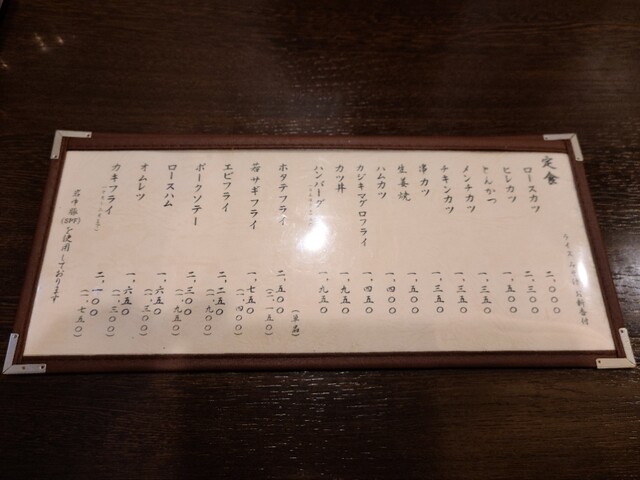 定食
ライス みそ汁 お新香付
ロースカツ 二、〇〇〇
ヒレカツ 二、三〇〇
とんかつ 一、三五〇
メンチカツ 一、三五〇
チキンカツ 一、三五〇
串カツ 一、三五〇
生姜焼 一、五〇〇
ハムカツ 一、四五〇
カジキマグロフライ 一、四五〇
カツ丼 一、九五〇
ハンバーグ 一、九五〇
(単品)
ホタテフライ 二、五〇〇
(二、一五〇)
若サギフライ 一、七五〇
(一、四〇〇)
エビフライ 二、二五〇
(一、九〇〇)
ポークソテー 二、三〇〇
(一、九五〇)
ロースハム 一、六五〇
(一、三〇〇)
オムレツ 一、六五〇
(一、三〇〇)
カキフライ 二、一〇〇
(一、七五〇)
岩中豚(SPF)を使用しております